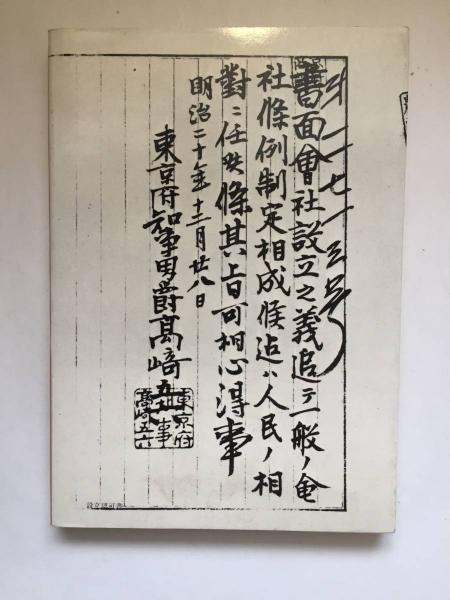 第一七一三号
書面會社設立之義追テ一般ノ會
社條例制定相成候迄ハ人民ノ相
對ニ任せ候條其旨可相心得事
明治二十年十二月廿八日
東京府知事男爵高崎五六
東京府
知事
高崎五六
設立認可書